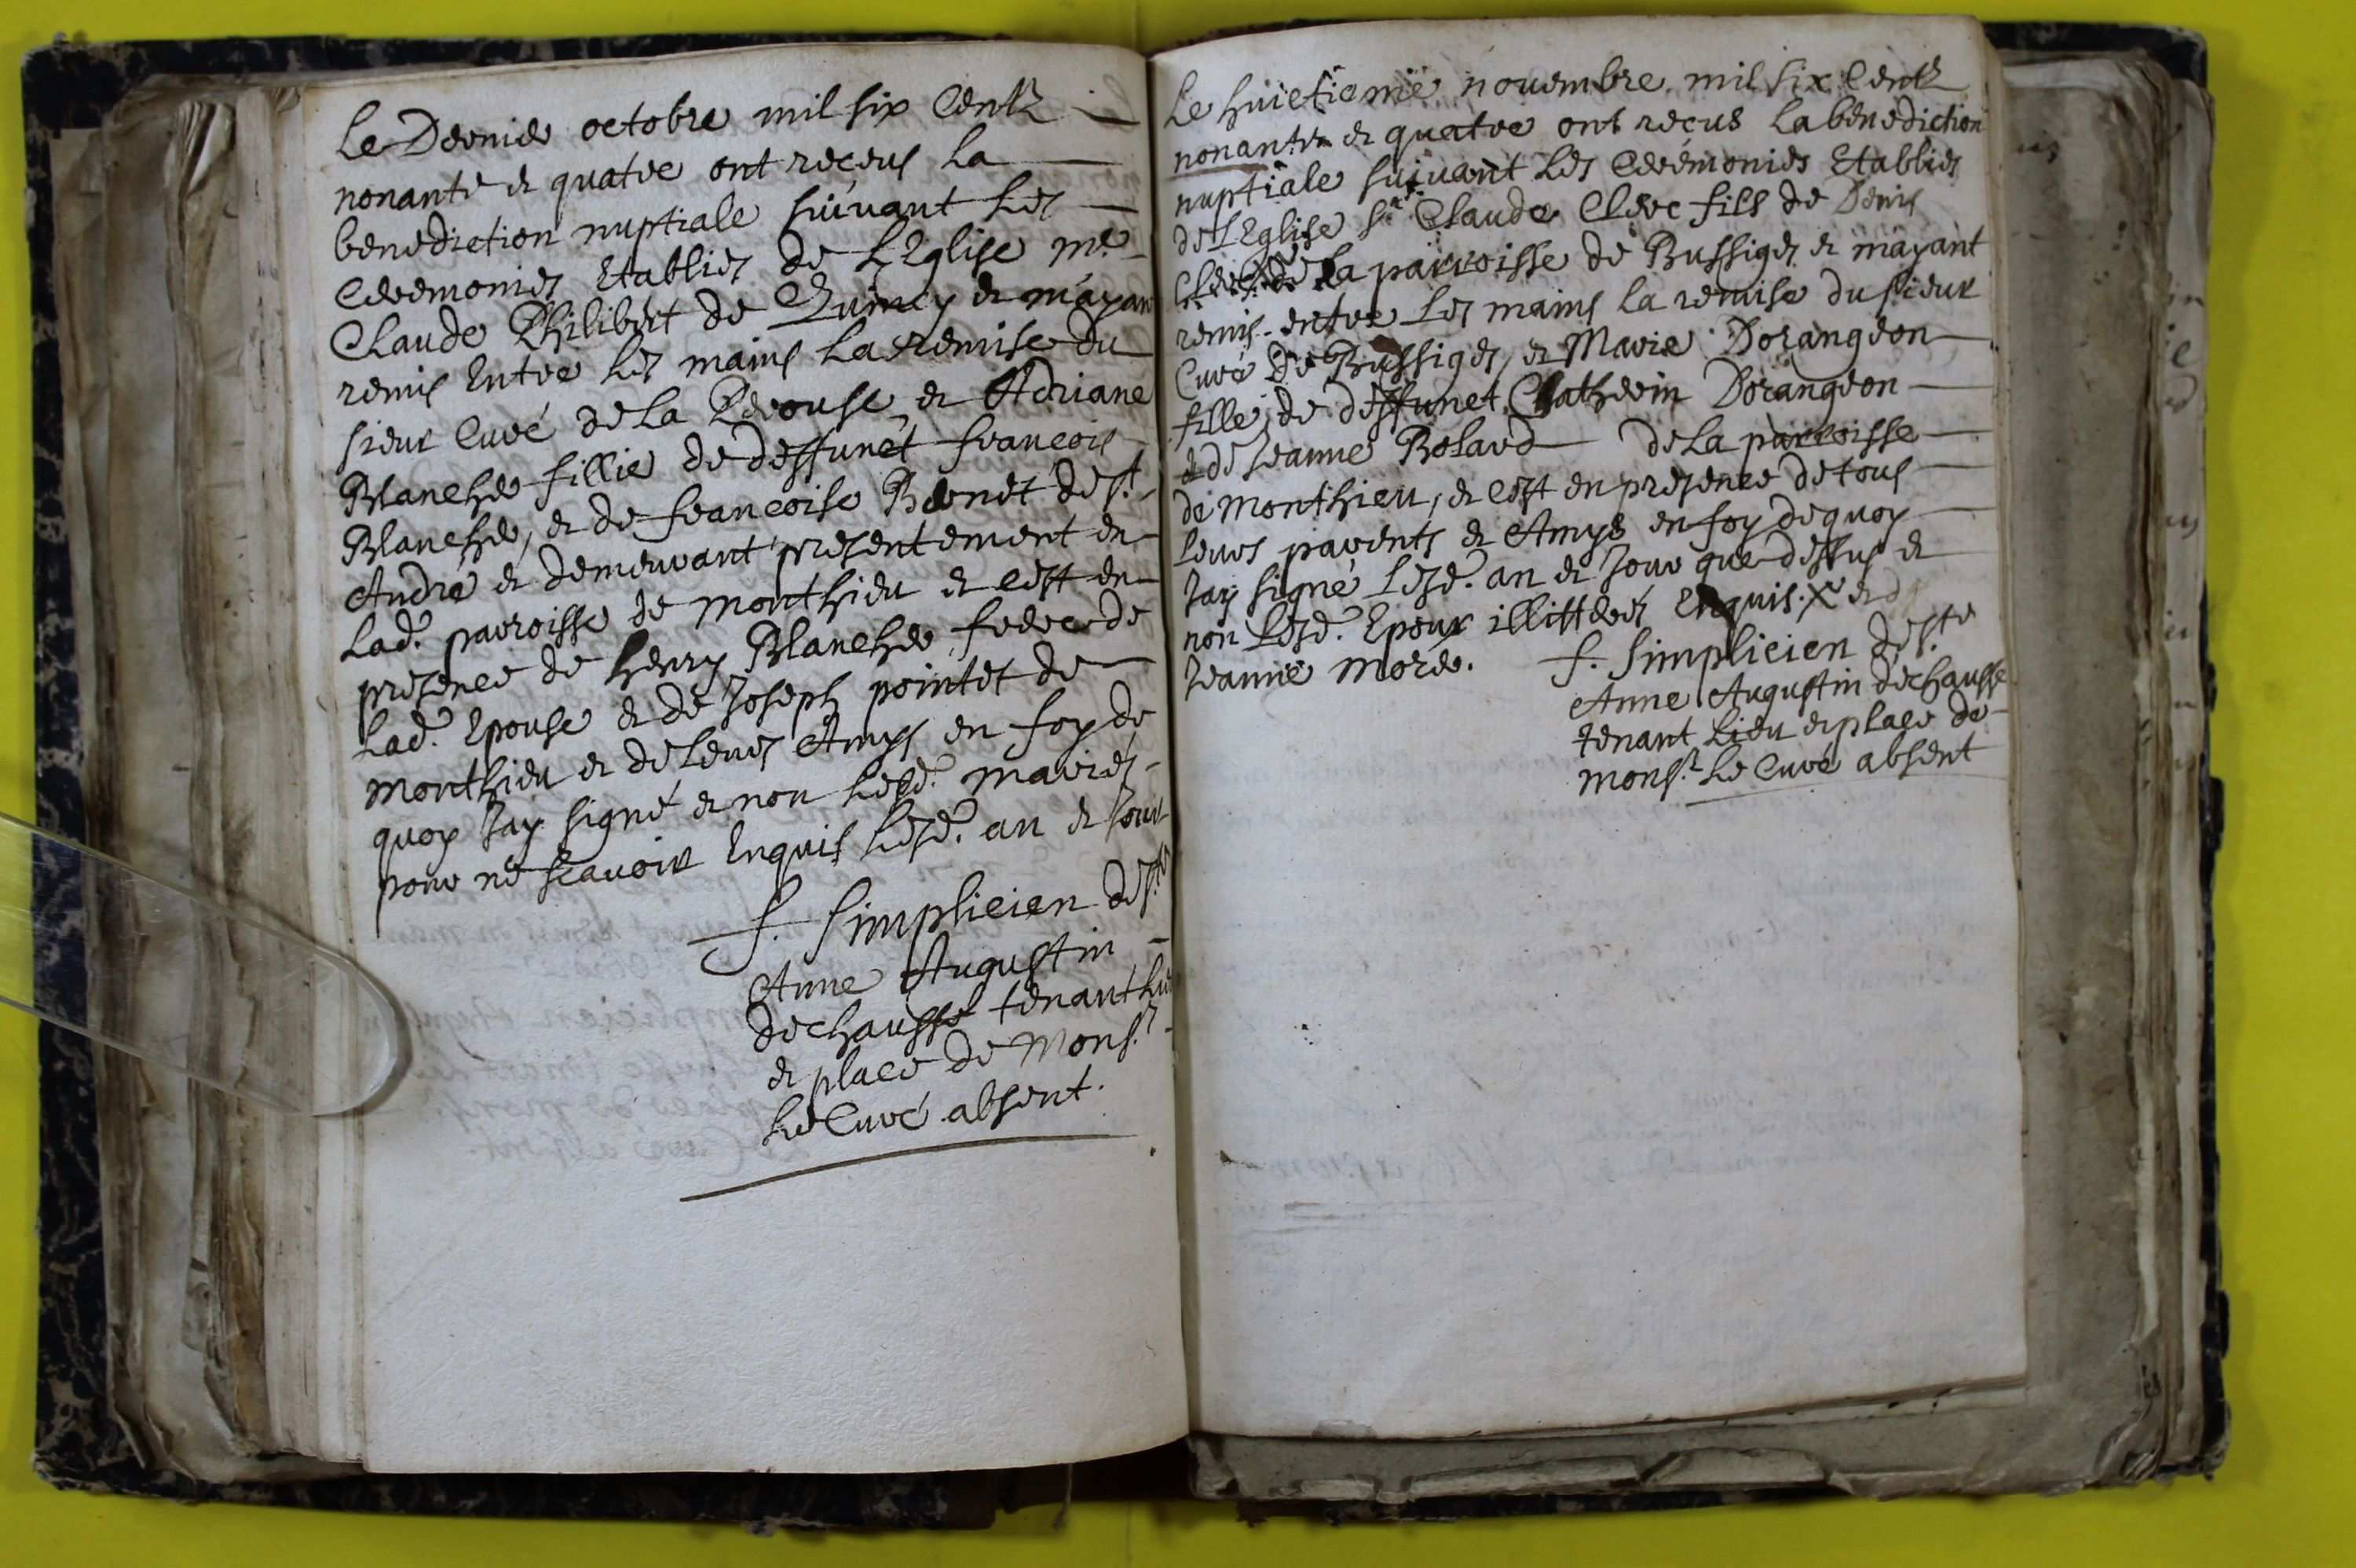 Le Dernier octobre mil six Centz
nonante et quatre ont reçeus La
benediction nuptiale suivant Les
Ceremonies Etablies de L'Eglise me
Claude Philibert de Quincy et m'ayant
remis Entre Les mains La remise du
sieur Curé de La Perouse et Adriane
Blanchee fillie de deffunct francois
Blanchee, et de francoise Benet de st
André et demeurant presentement en
Lad. parroisse de monthieu et c'est en
presence de henry Blanchee frere de
Lad. Epouse et de Joseph pointet de
monthieu et de Leurs Amys en foy de
quoy Jay signé et non Lesd. mariés
pour ne sçavoir Enquis Lesd. an et Jour
f. Simplicien de ste
Anne Augustin
dechaussé tenant Lieu
et place de Monsr
Le Curé absent.
Le huictieme novembre mil six Centz
nonante et quatre ont reçus La benediction
nuptiale suivant Les Ceremonies Etablies
de L'Eglise sr Claude Clerc fils de Denis
Clerc de La parroisse de Bussiges et m'ayant
remis entre Les mains La remise du sieur
Curé de Bussiges, et Marie Dorangeon
fille de deffunct Catherin Dorangeon
et de Jeanne Bolard de La parroisse
de Monthieu, et c'est en presence de tous
Leurs parents et Amys en foy de quoy
Jay signé Lesd. an et Jour que dessus et
non Lesd. Epoux illitterés Enquis. X et d
Jeanne More.
f. Simplicien de ste
Anne Augustin dechaussé
tenant Lieu et place de
monsr Le Curé absent